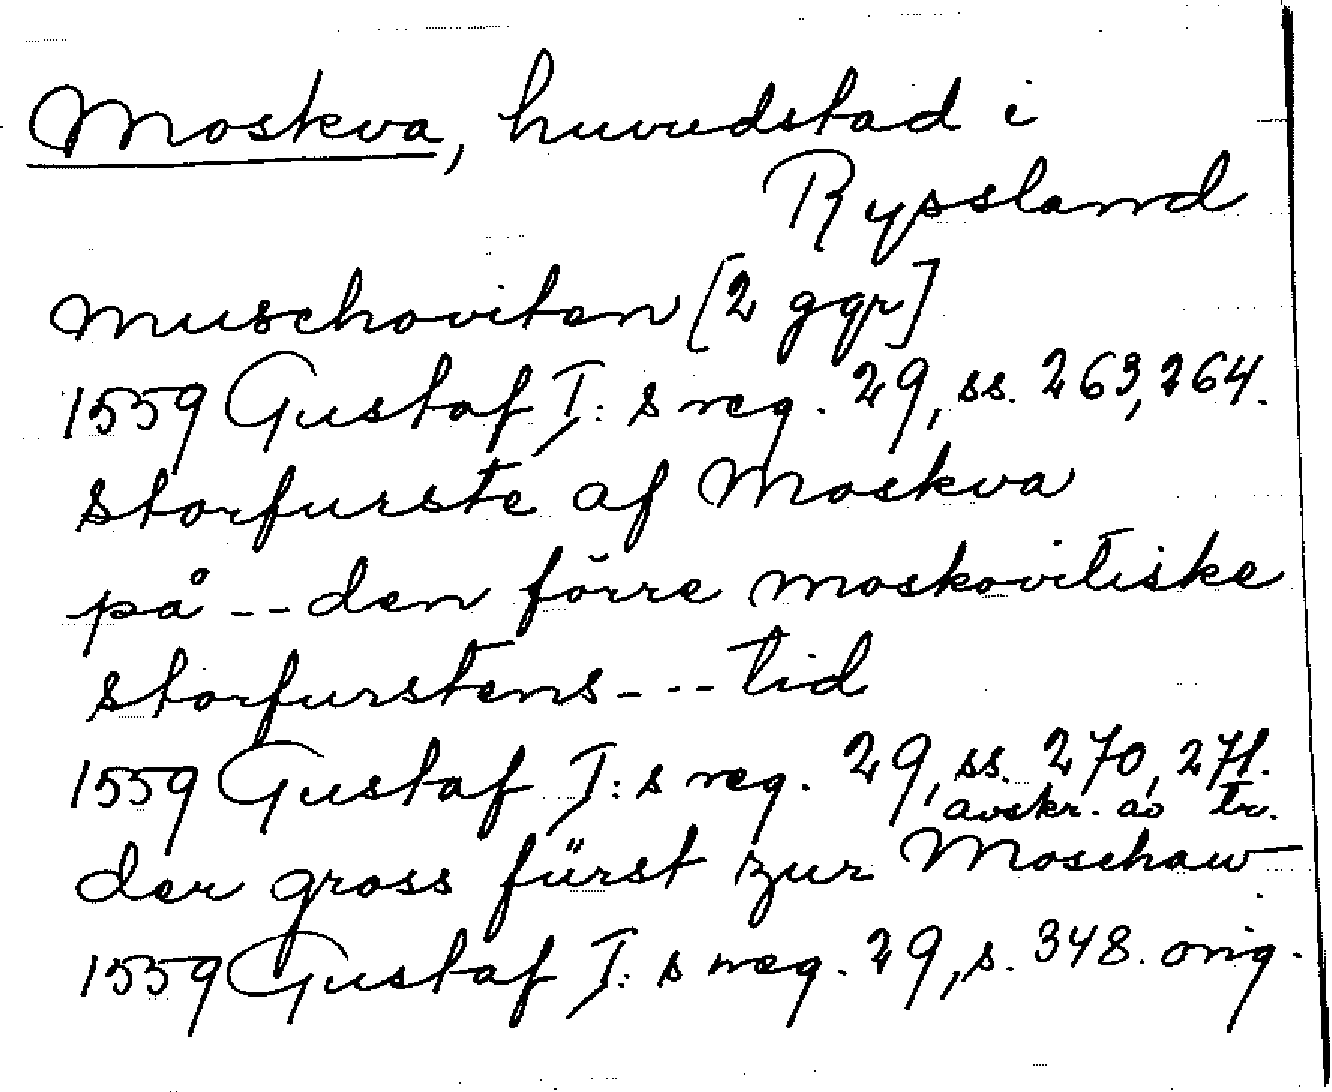 Moskva, huvudstad i
Ryssland
Muschoviten [2 ggr]
1559 Gustaf I:s reg. 29, ss. 263, 264.
storfurste af Moskva
på -- den förre moskovitiske
storfurstens --- tid
1559 Gustaf I:s reg. 29, ss. 270, 271.
avskr. av tr.
der gross fürst zur Moschaw
1559 Gustaf I:s reg. 29, s. 348. orig.